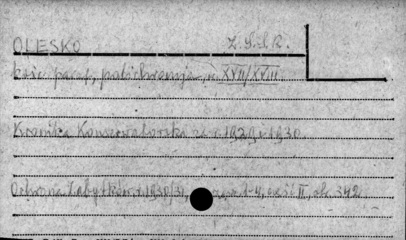 OLESKO Z.S.S.R.
kość. paraf., polichromja, w. XVII/XVIII.
Kronika Konserwatorska za r. 1929 i 1930
Ochrona Zabytków r. 1930/31, 1-4, część II, str. 342